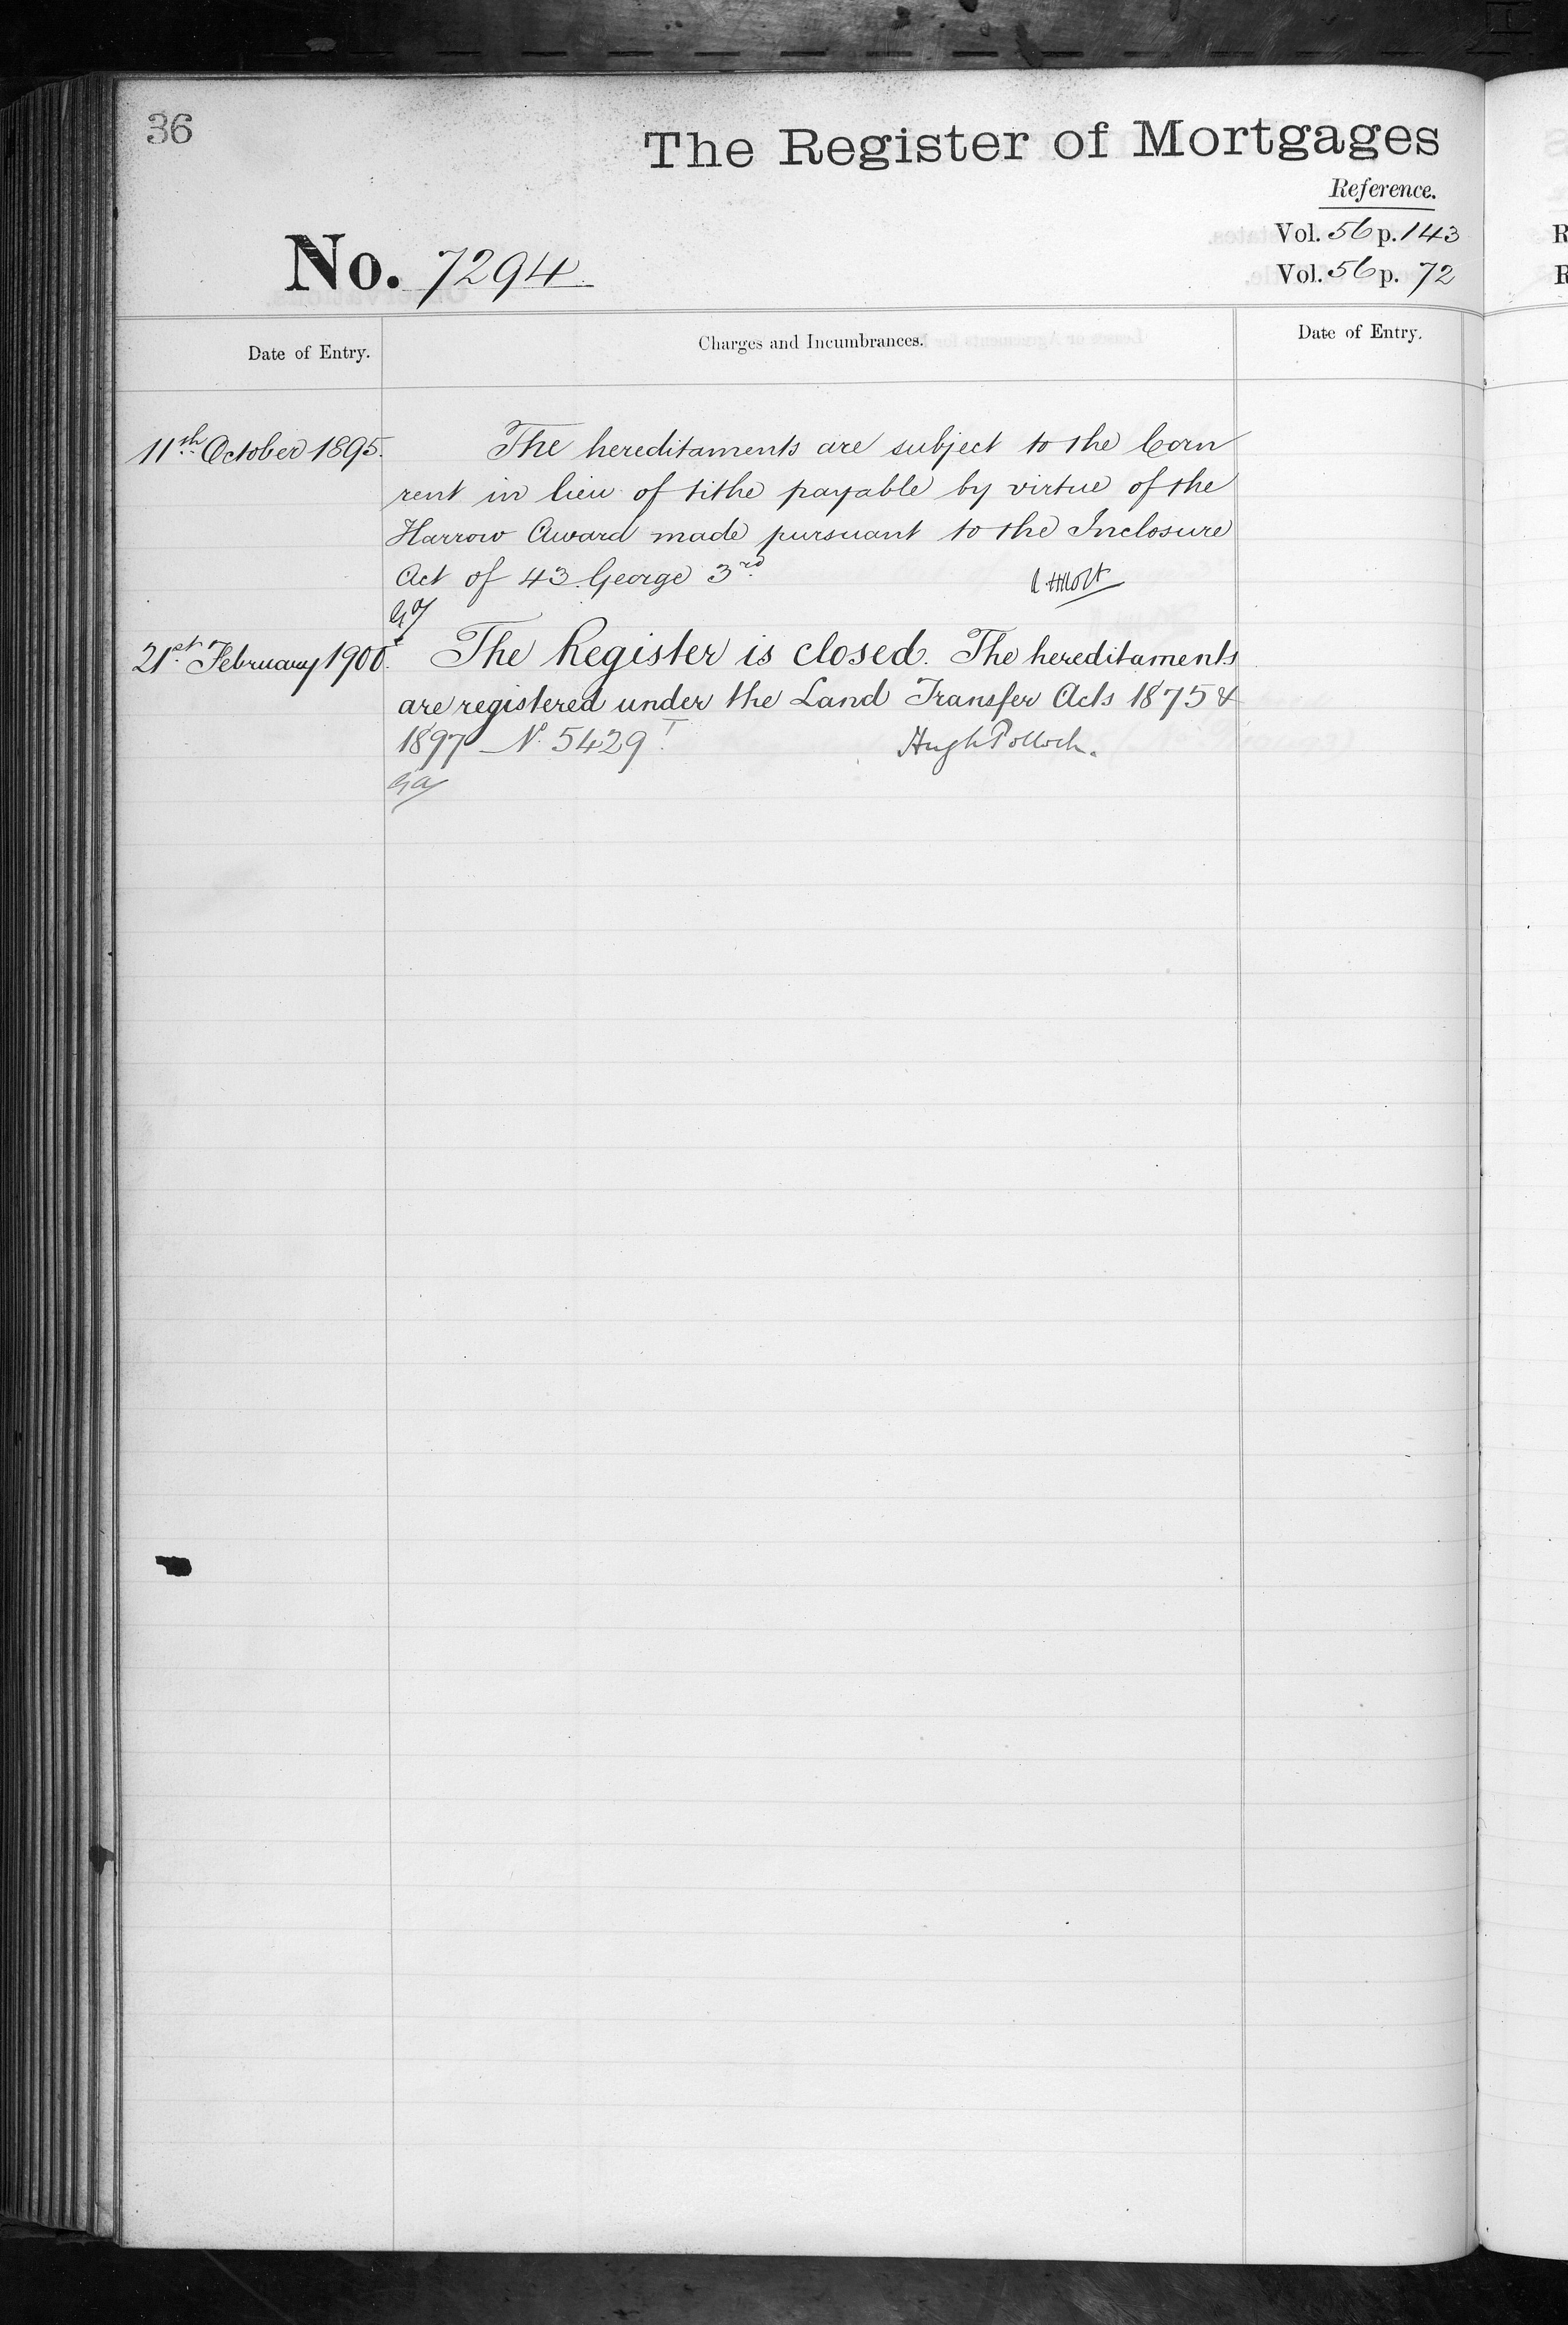 36
The Register of Mortgages
Reference.
Vol. 56 p. 143
No. 7294
Vol. 56 p. 72
Date of Entry.
Charges and Incumbrances.
Date of Entry.
11th October 1895.
The hereditaments are subject to the Corn
rent in lieu of tithe payable by virtue of the
Harrow Award made pursuant to the Inclosure
Act of 43 George 3rd
21st February 1900.
The Register is closed. The hereditaments
are registered under the Land Transfer Acts 1875 &
1897 No. 5429 Hugh Pollock.